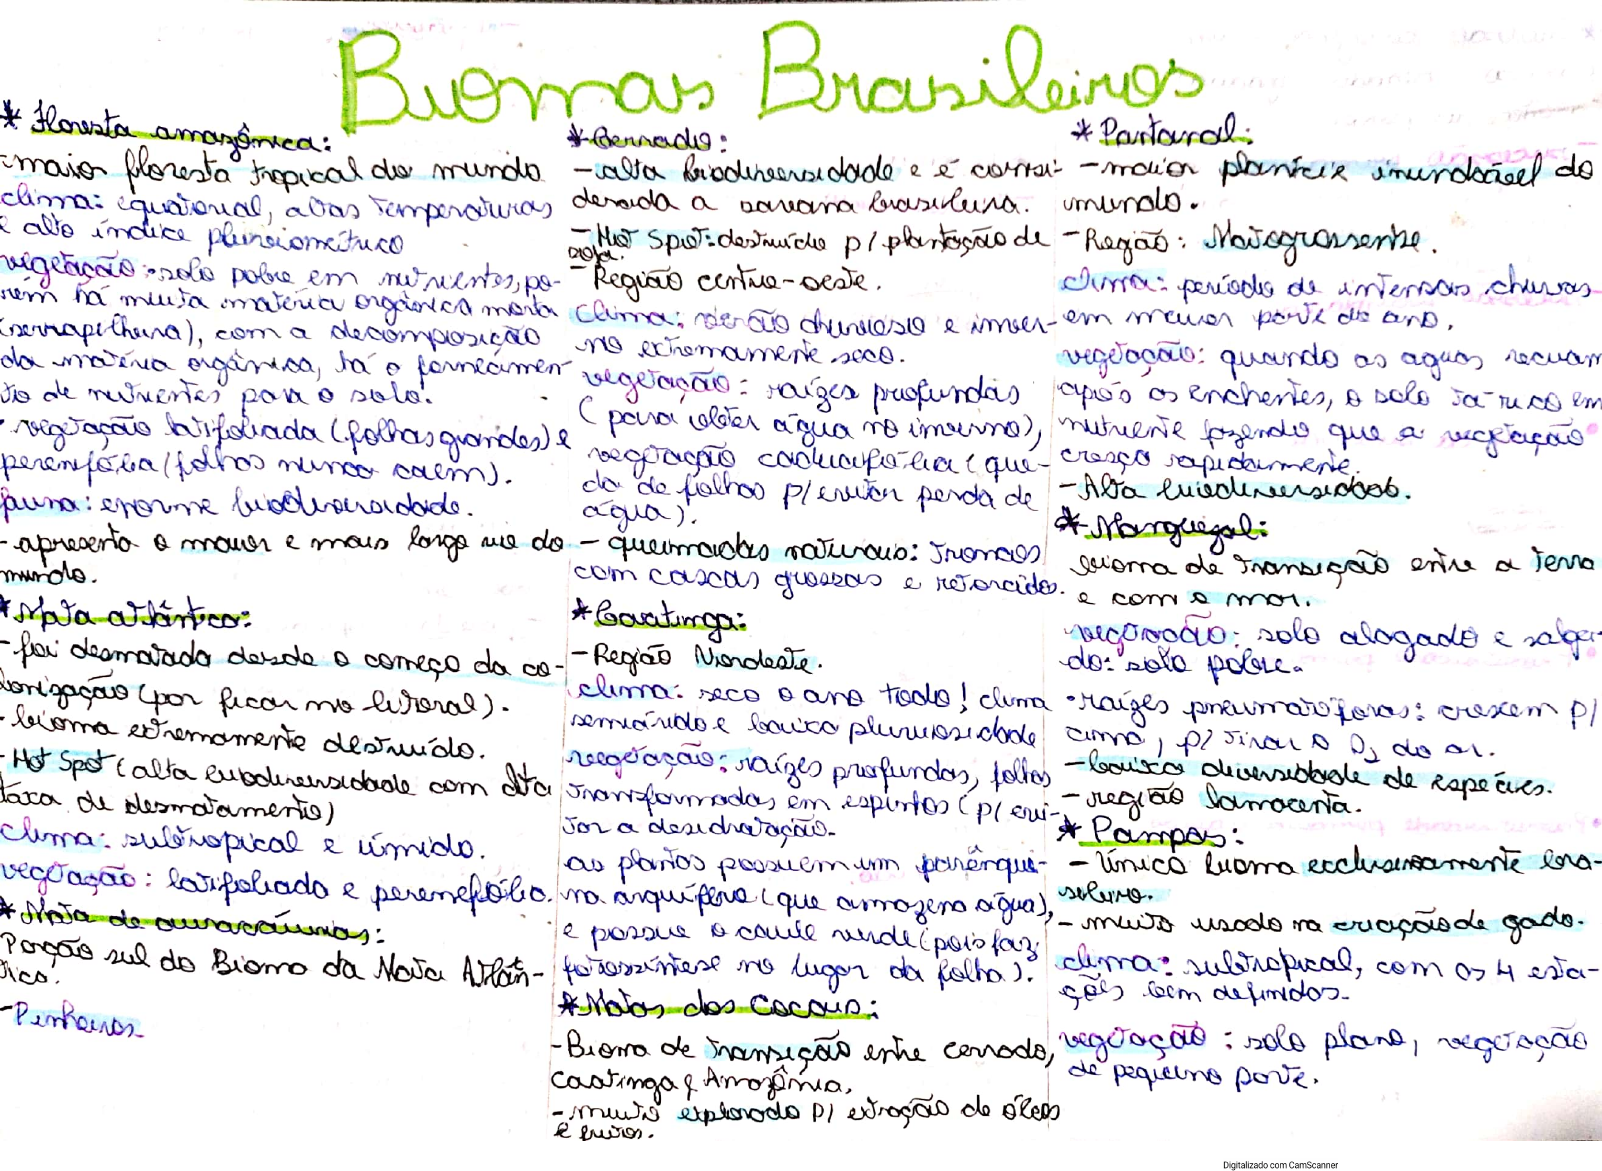 Biomas Brasileiros
* Floresta amazônica:
- maior floresta tropical do mundo
clima: equatorial, altas temperaturas
e alto índice pluviométrico
vegetação: solo pobre em nutrientes, po-
rém há muita matéria orgânica morta
(serrapilheira), com a decomposição
da matéria orgânica, há o fornecimen-
to de nutrientes para o solo.
• vegetação latifoliada (folhas grandes) e
perenifólia (folhas nunca caem).
fauna: enorme biodiversidade.
- apresenta o maior e mais longo rio do
mundo.
* Mata atlântica:
- foi desmatada desde o começo da co-
lonização (por ficar no litoral).
- bioma extremamente destruído.
- Hot Spot (alta biodiversidade com alta
taxa de desmatamento)
clima: subtropical e úmido.
vegetação: latifoliada e perenefólia.
* Mata de araucárias:
Porção sul do Bioma da Mata Atlân-
tica.
- Pinheiros
* Cerrado:
- alta biodiversidade e é consi-
derada a savana brasileira.
- Hot Spot: destruído p/ plantação de
soja.
- Região centro-oeste.
Clima: verão chuvoso e inver-
no extremamente seco.
vegetação: raízes profundas
(para obter água no inverno),
vegetação caducifólia (que-
da de folhas p/ evitar perda de
água).
- queimadas naturais: troncos
com cascas grossas e retorcidos.
* Caatinga:
- Região Nordeste.
clima: seco o ano todo! clima
semiárido e baixa pluviosidade
vegetação: raízes profundas, folhas
transformadas em espinhos (p/ evi-
tar a desidratação.
as plantas possuem um parênqui-
ma aquífero (que armazena água),
e possue o caule verde (pois faz
fotossíntese no lugar da folha).
* Matas dos Cocais:
- Bioma de transição entre cerrado,
Caatinga e Amazônia.
- muito explorado p/ extração de óleos
e
* Pantanal:
- maior planície inundável do
mundo.
- Região: Matogrossense.
clima: período de intensas chuvas
em maior parte do ano.
vegetação: quando as aguas recuam
após as enchentes, o solo tá rico em
nutriente fazendo que a vegetação
cresça rapidamente.
- Alta biodiversidade.
* Manguezal:
bioma de transição entre a terra
e com o mar.
vegetação: solo alagado e salga-
do: solo pobre.
• raízes pneumatóforas: crescem p/
cima, p/ tirar o O2 do ar.
- baixa diversidade de espécies.
- região lamacenta.
* Pampas:
- Único bioma exclusivamente bra-
sileiro.
- muito usado na criação de gado.
clima: subtropical, com as 4 esta-
ções bem definidas.
vegetação: solo plano, vegetação
de pequeno porte.
Digitalizado com CamScanner